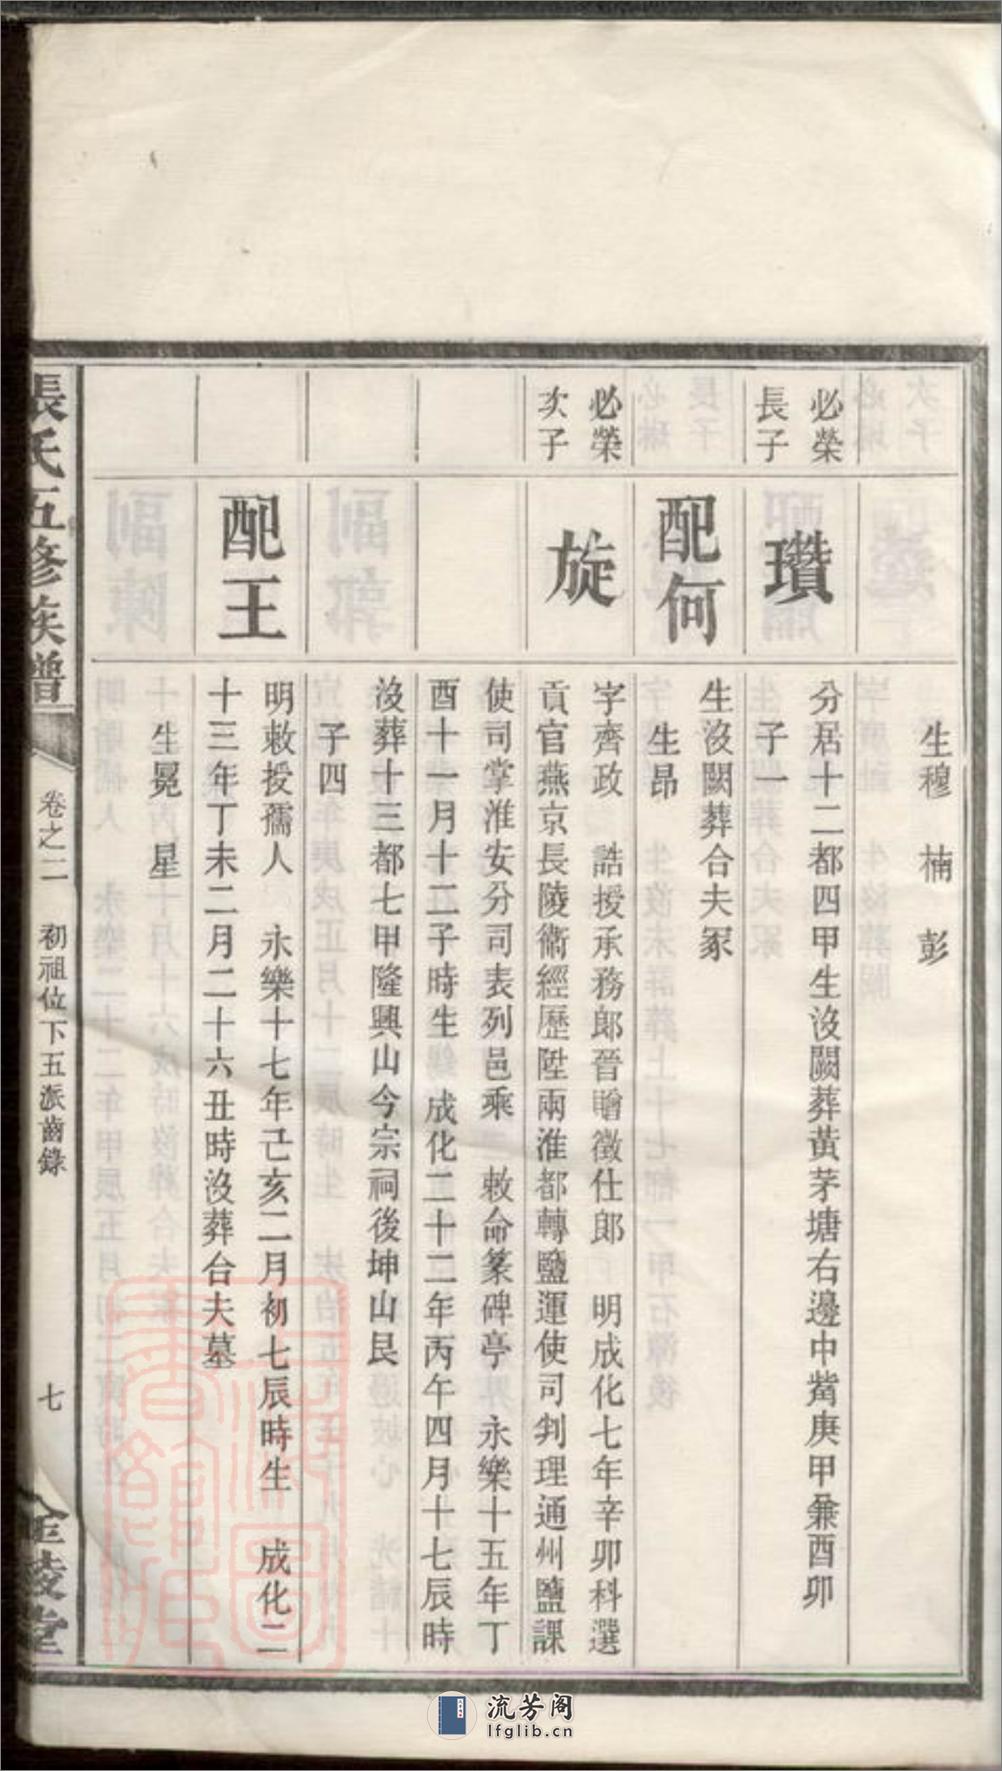 生穆 楠 彭
必榮
長子
瓚
分居十二都四甲生沒闕葬黃茅塘右邊中觜庚甲兼酉卯
子一
配何
生沒闕葬合夫冢
生昂
必榮
次子
旋
字齊政 誥授承務郎晉贈徵仕郎 明成化七年辛卯科選
貢官燕京長陵衞經歷陞兩淮都轉鹽運使司判理通州鹽課
使司掌淮安分司表列邑乘 敕命篆碑亭 永樂十五年丁
酉十一月十二子時生 成化二十二年丙午四月十七辰時
沒葬十三都七甲隆興山今宗祠後坤山艮
子四
配王
明敕授孺人 永樂十七年己亥二月初七辰時生 成化二
十三年丁未二月二十六丑時沒葬合夫墓
生冕 星
張氏五修族譜
卷之二 初祖位下五派齒錄
七
金陵堂
流芳阁
lfglib.cn